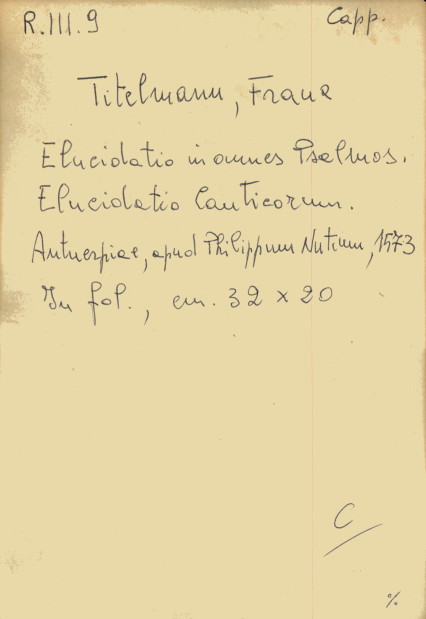 R.III.9 Capp.
Titelmann, Franz
Elucidatio in omnes Psalmos.
Elucidatio Canticorum.
Antuerpiae, apud Philippum Nutium, 1573
In fol., cm. 32 x 20
C
%